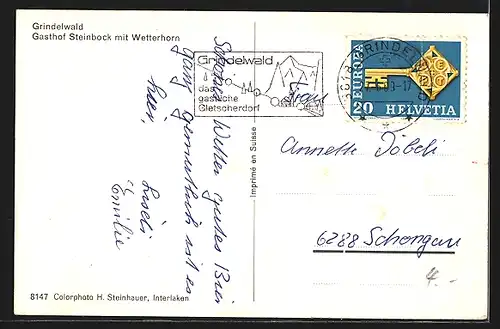 Grindelwald
Gasthof Steinbock mit Wetterhorn
Schönes Wetter gutes Bier
ganz gemütlich ist es
hier,
Liseli
Emilie
Grindelwald
das
gastliche
Gletscherdorf
EUROPA
20 HELVETIA
Imprimé en Suisse
Frau
Annette Döbeli
6288 Schongau
4.-
8147 Colorphoto H. Steinhauer, Interlaken